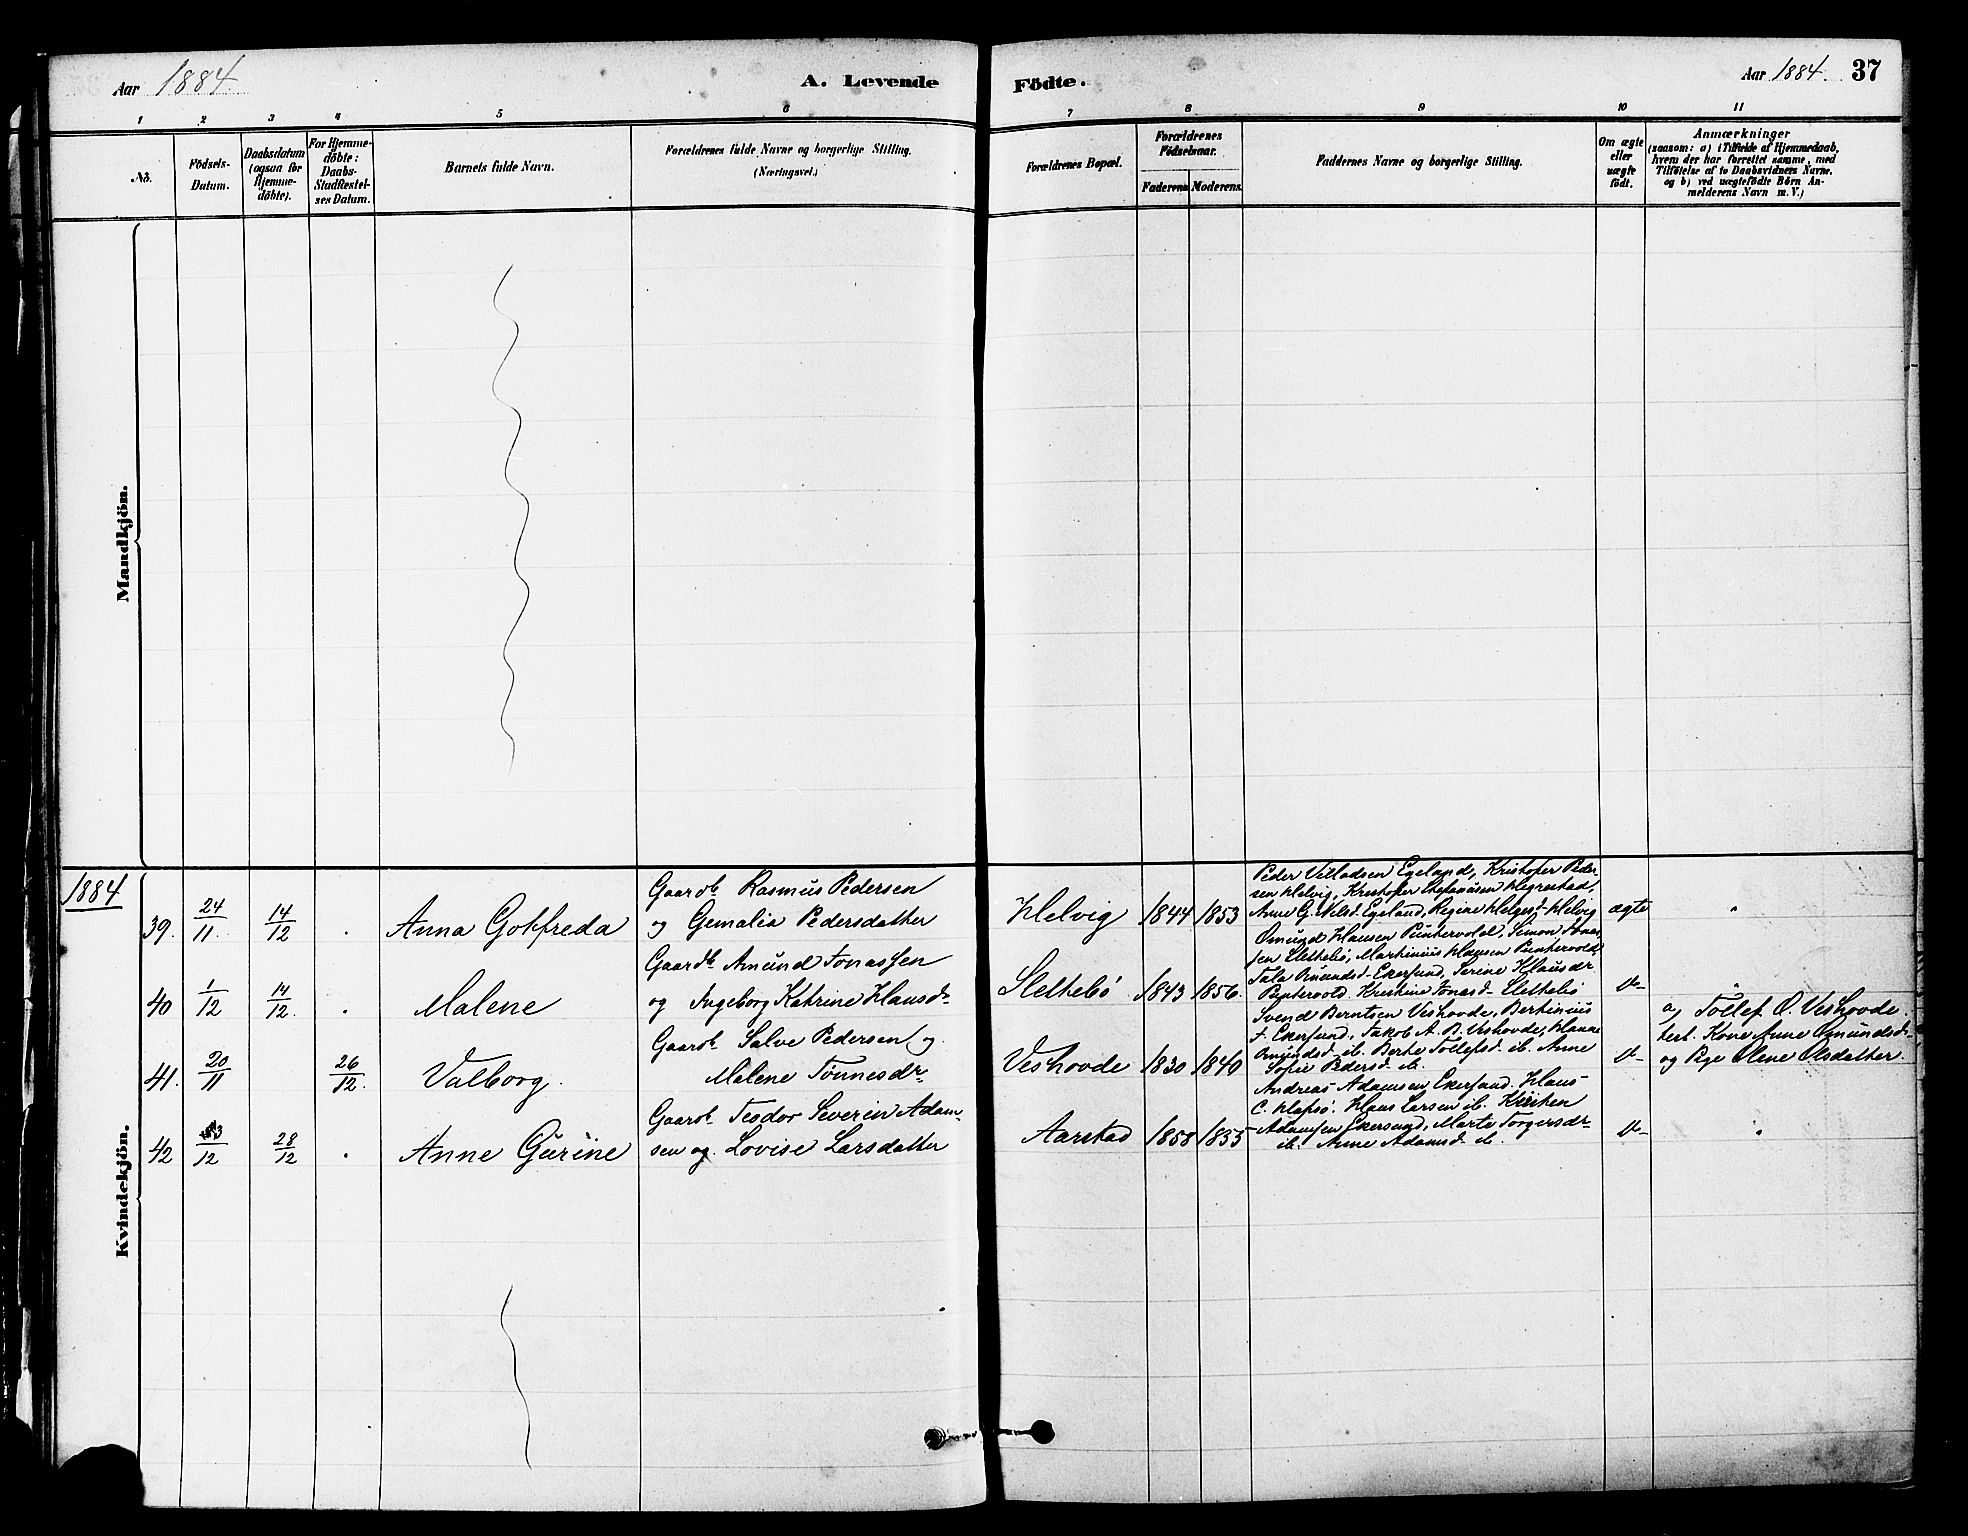 Aar 1884.
A. Levende
Födte.
Aar 1884. 37
1 2 3 4 5 6 7 8 9 10 11
No.
Födsels-
Datum.
Daabsdatum
(ogsaa for
Hjemme-
döbte).
For Hjemme-
döbte:
Daabs-
Stadfæstel-
ses Datum.
Barnets fulde Navn.
Forældrenes fulde Navne og borgerlige Stilling.
(Næringsvei.)
Forældrenes Bopæl.
Forældrenes
Födselsaar.
Faderens Moderens.
Faddernes Navne og borgerlige Stilling.
Om ægte
eller
uægte
födt.
Anmærkninger
(saasom: a) i Tilfælde af Hjemmedaab,
hvem der har forrettet samme, med
Tilföielse af to Daabsvidners Navne,
og b) ved uægtefödte Börn An-
melderens Navn m. V.)
Mandkjön.
1884
Kvindekjön.
39. 24/11. 14/12 . Anna Gotfreda
Gaardb. Rasmus Pedersen
og Gemalia Pedersdatter
Helvig 1844 1853
Peder Villadsen Egeland, Kristofer Peder-
sen Helvig, Kristofer Stefansen Hegrestad,
Anne G. Nilsd. Egeland, Regine Helgesd. Helvig
ægte "
40 1/12 14/12. . Malene
Gaardb. Amund Jonassen
og Ingeborg Katrine Klausdr
Slettebö 1843 1856.
Omund Hansen Puntervold, Simon Jonas-
sen Slettebö, Martinius Hansen Puntervold,
Tala Omundsd. Ekersund, Serine Klausdr
Puntervold, Kristine Jonasd. Slettebö
do "
41. 20/11 26/12. Valborg.
Gaardb. Salve Pedersen og
Malene Tönnesdr
Veshovde 1830 1840
Svend Berntsen Veshovde, Bertinius
J. Ekersund, Jakob A. B. Veshovde, Hanne
Omundsd. ib. Berte Tollefsd. ib. Anne
Sofie Pedersd. ib.
do
a) Tollef O. Veshovde.
test. Kone Anne Omundsd.
og Pige Elene Olsdatter.
42 /12 28/12 . Anne Gurine
Gaardb. Teodor Severin Adam-
sen og Lovise Larsdatter
Aarstad 1858 1855
Andreas Adamsen Ekersund. Klaus
C. Hafsö. Klaus Larsen ib. Kirsten
Adamsen Ekersund, Marte Torgersdr
ib. Anne Adamsd. ib.
do "